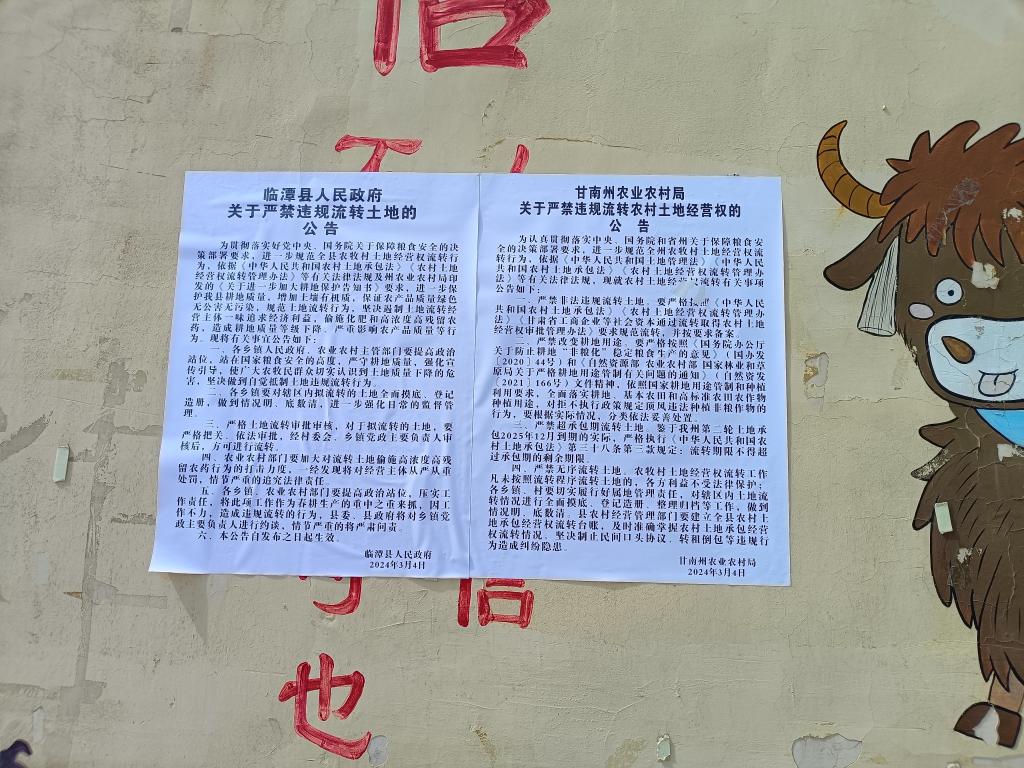 信
不
临潭县人民政府
关于严禁违规流转土地的
公告
为贯彻落实好党中央、国务院关于保障粮食安全的决
策部署要求，进一步规范全县农牧村土地经营权流转行
为，依据《中华人民共和国农村土地承包法》《农村土地
经营权流转管理办法》等有关法律法规及州农业农村局印
发的《关于进一步加大耕地保护告知书》要求，进一步保
护我县耕地质量，增加土壤有机质，保证农产品质量绿色
无公害无污染，规范土地流转行为，坚决遏制土地流转经
营主体一味追求经济利益，偷施化肥和高浓度高残留农
药，造成耕地质量等级下降，严重影响农产品质量等行
为。现将有关事宜公告如下：
一、各乡镇人民政府、农业农村主管部门要提高政治
站位，站在国家粮食安全的高度，严守耕地质量，强化宣
传引导，使广大农牧民群众切实认识到土地质量下降的危
害，坚决做到自觉抵制土地违规流转行为。
二、各乡镇要对辖区内拟流转的土地全面摸底、登记
造册，做到情况明、底数清，进一步强化日常的监督管
理。
三、严格土地流转审批审核，对于拟流转的土地，要
严格把关、依法审批，经村委会、乡镇党政主要负责人审
核后，方可进行流转。
四、农业农村部门要加大对流转土地偷施高浓度高残
留农药行为的打击力度，一经发现将对经营主体从严从重
处罚，情节严重的追究法律责任。
五、各乡镇、农业农村部门要提高政治站位，压实工
作责任，将此项工作作为春耕生产的重中之重来抓，因工
作不力，造成违规流转的行为，县委、县政府将对乡镇党
政主要负责人进行约谈，情节严重的将严肃问责。
六、本公告自发布之日起生效。
临潭县人民政府
2024年3月4日
甘南州农业农村局
关于严禁违规流转农村土地经营权的
公 告
为认真贯彻落实中央、国务院和省州关于保障粮食安
全的决策部署要求，进一步规范全州农牧村土地经营权流
转行为，依据《中华人民共和国土地管理法》《中华人民
共和国农村土地承包法》《农村土地经营权流转管理办
法》等有关法律法规，现就农村土地经营权流转有关事项
公告如下：
一、严禁非法违规流转土地。要严格按照《中华人民
共和国农村土地承包法》《农村土地经营权流转管理办
法》《甘肃省工商企业等社会资本通过流转取得农村土地
经营权审批管理办法》要求规范流转，并按要求备案。
二、严禁改变耕地用途。要严格按照《国务院办公厅
关于防止耕地“非粮化”稳定粮食生产的意见》（国办发
〔2020〕44号）和《自然资源部 农业农村部 国家林业和草
原局关于严格耕地用途管制有关问题的通知》（自然资发
〔2021〕166号）文件精神，依照国家耕地用途管制和种植
利用要求，全面落实耕地、基本农田和高标准农田农作物
种植用途，对拒不执行政策规定顶风违法种植非粮作物的
行为，要根据实际情况，分类依法妥善处置。
三、严禁超承包期流转土地。鉴于我州第二轮土地承
包2025年12月到期的实际，严格执行《中华人民共和国农
村土地承包法》第三十八条第三款规定：流转期限不得超
过承包期的剩余期限。
四、严禁无序流转土地。农牧村土地经营权流转工作
凡未按照流转程序流转土地的，各方利益不受法律保护；
各乡镇、村要切实履行好属地管理责任，对辖区内土地流
转情况进行全面摸底、登记造册、整理归档等工作，做到
情况明，底数清。县农村经营管理部门要建立全县农村土
地承包经营权流转台账，及时准确掌握农村土地承包经营
权流转情况。坚决制止民间口头协议、转租倒包等违规行
为造成纠纷隐患。
甘南州农业农村局
2024年3月4日
信
也